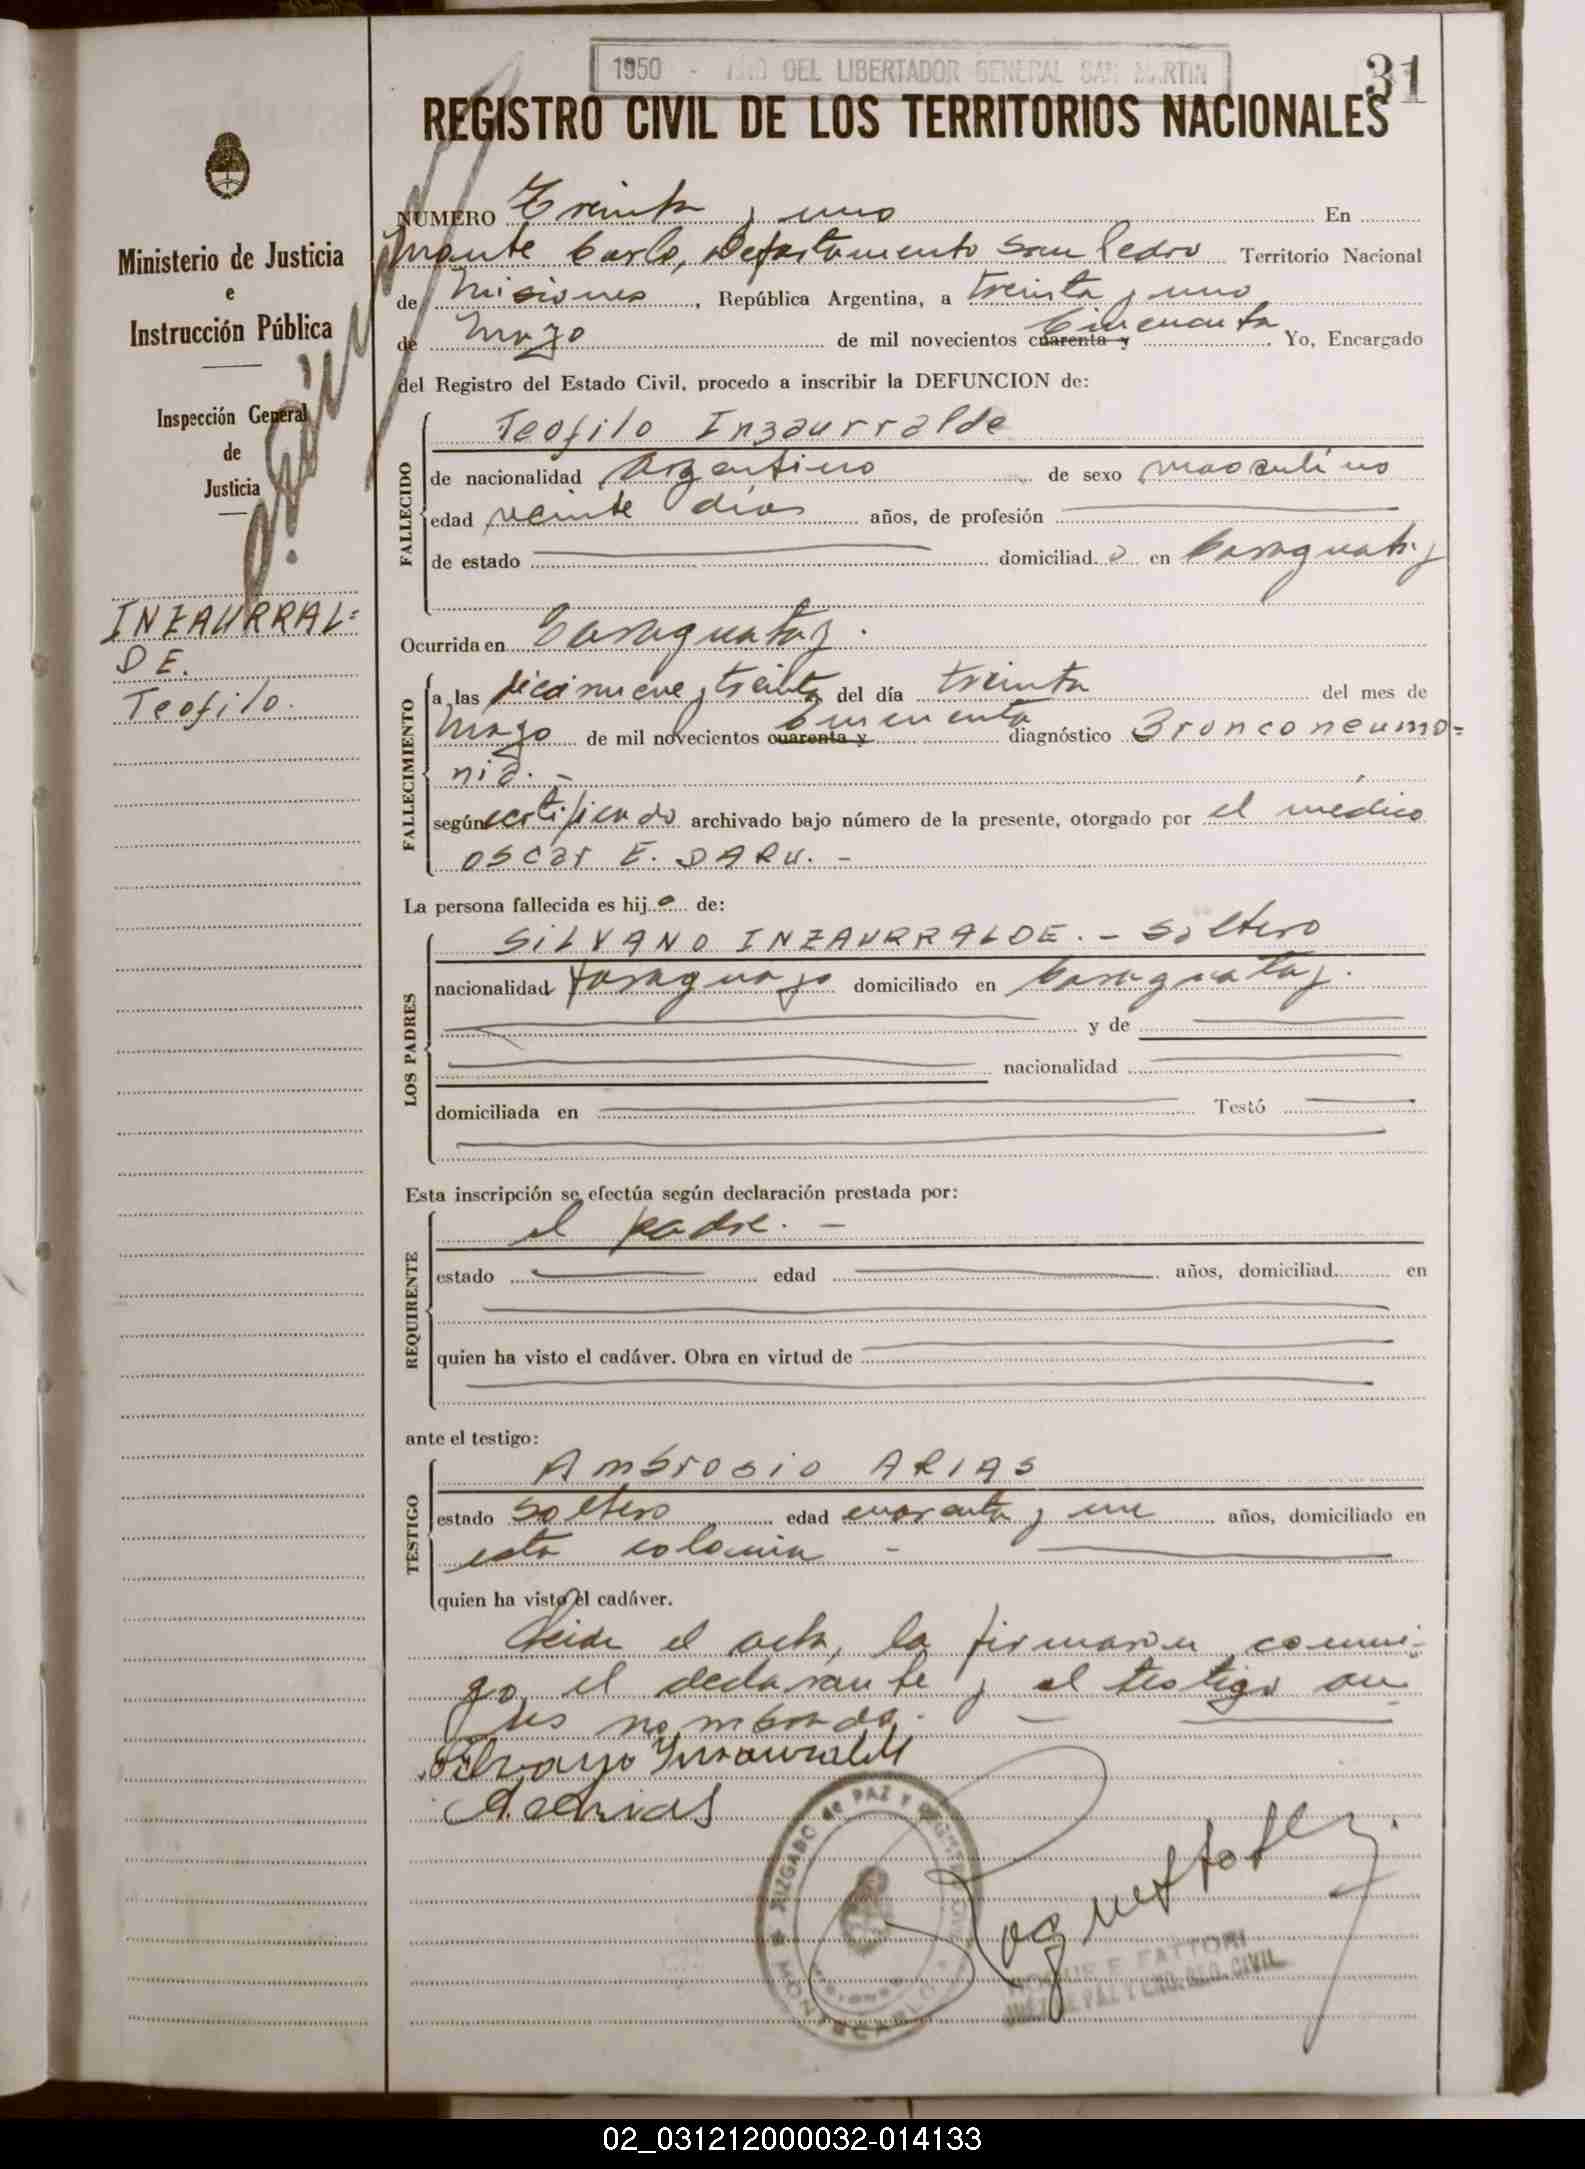 1950 - AÑO DEL LIBERTADOR GENERAL SAN MARTIN
31
REGISTRO CIVIL DE LOS TERRITORIOS NACIONALES
Ministerio de Justicia
e
Instrucción Pública
Inspección General
de
Justicia
INZAURRAL=
DE.
Teofilo.
NÚMERO Treinta y uno En
Monte Carlo, Departamento San Pedro Territorio Nacional
de Misiones, República Argentina, a treinta y uno
de Mayo de mil novecientos cuarenta y Cincuenta. Yo, Encargado
del Registro del Estado Civil, procedo a inscribir la DEFUNCION de:
FALLECIDO
Teofilo Inzaurralde
de nacionalidad Argentino de sexo masculino
edad veinte días años, de profesión
de estado domiciliad o en Caraguatay
Ocurrida en Caraguatay.
FALLECIMIENTO
a las diecinueve y treinta del día treinta del mes de
Mayo de mil novecientos cuarenta y Cincuenta diagnóstico Bronconeumo=
nia. -
según certificado archivado bajo número de la presente, otorgado por el médico
oscar E. DARU. -
La persona fallecida es hijo de:
LOS PADRES
SILVANO INZAURRALDE. - Soltero
nacionalidad paraguayo domiciliado en Caraguatay.
y de
nacionalidad
domiciliada en Testó
Esta inscripción se efectúa según declaración prestada por:
REQUIRENTE
el padre. -
estado edad años, domiciliad en
quien ha visto el cadáver. Obra en virtud de
ante el testigo:
TESTIGO
Ambrosio ARIAS
estado Soltero edad cuarenta y un años, domiciliado en
esta colonia -
quien ha visto el cadáver.
Leida el acta, la firmaron conmi-
go, el declarante y el testigo an-
tes nombrado.
A. Arias
JUZGADO de PAZ Y
MISIONES
MONTECARLO
ROQUE E. FATTORI
JUEZ DE PAZ Y ENC. REG. CIVIL
02_031212000032-014133